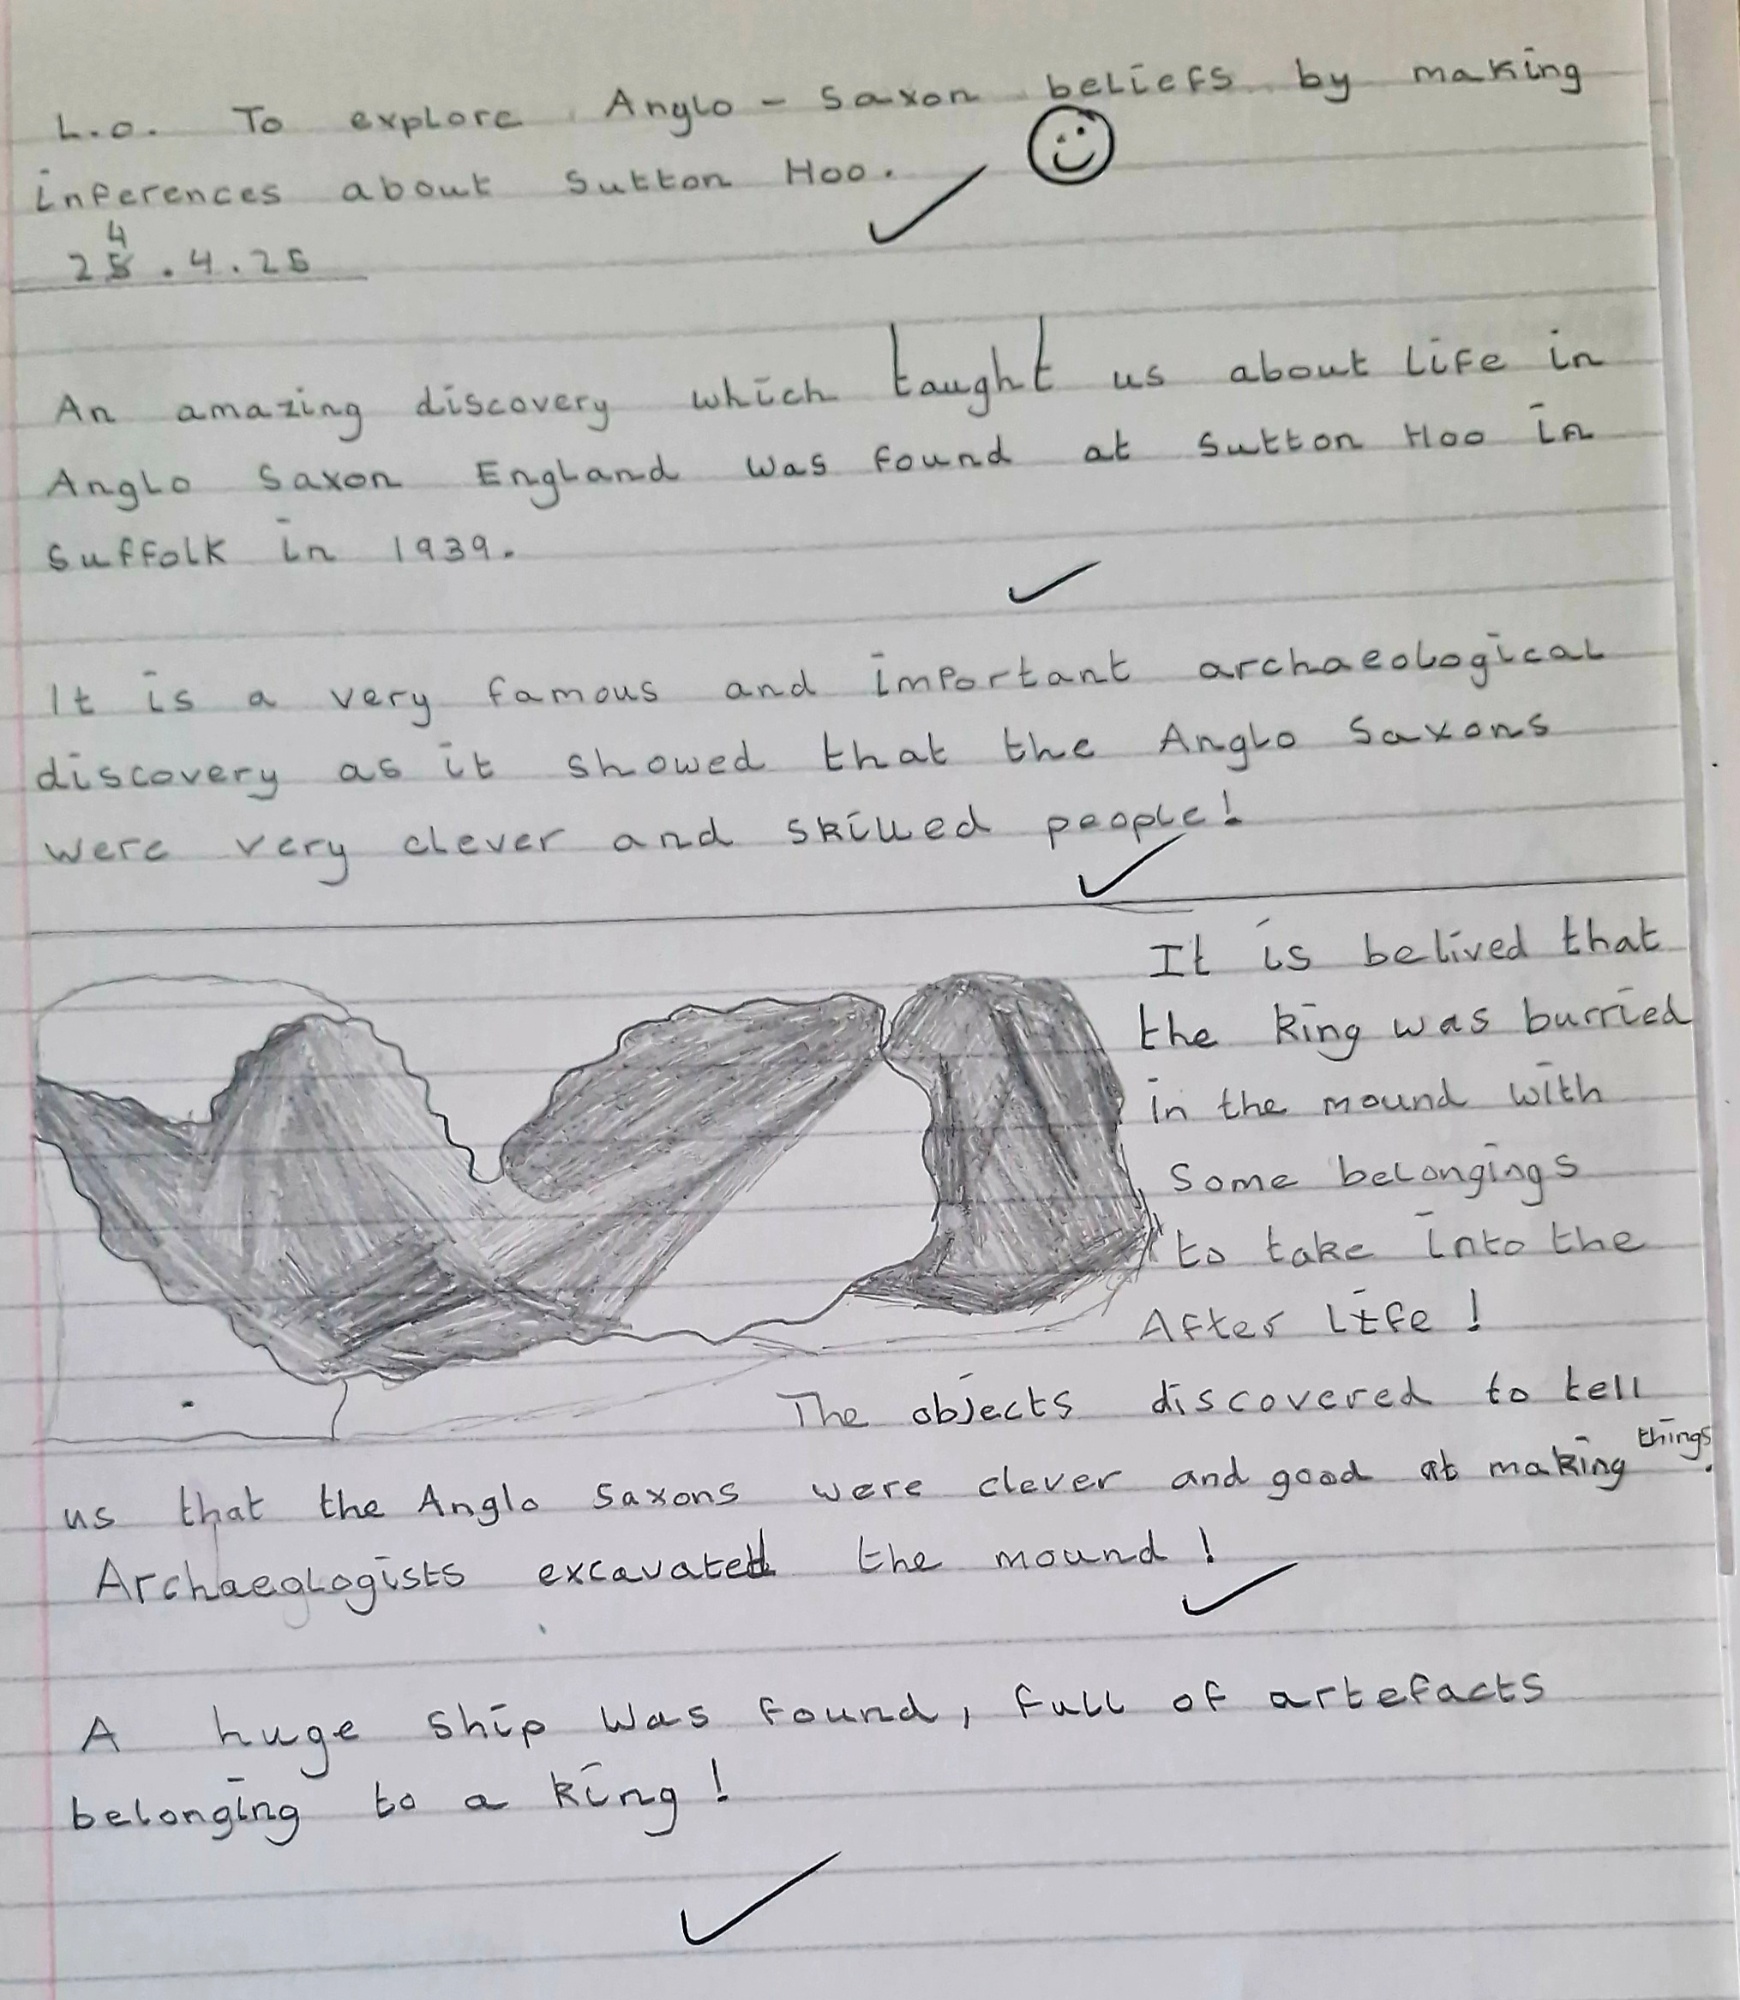 L.o. To explore Anglo - Saxon beliefs by making
inferences about Sutton Hoo.
4
25.4.25
An amazing discovery which taught us about life in
Anglo Saxon England was found at Sutton Hoo in
Suffolk in 1939.
It is a very famous and important archaeological
discovery as it showed that the Anglo Saxons
were very clever and skilled people!
It is belived that
the king was burried
in the mound with
some belongings
to take into the
After life!
The objects discovered to tell
things.
us that the Anglo Saxons were clever and good at making
Archaeologists excavated the mound!
A huge ship was found, full of artefacts
belonging to a king!